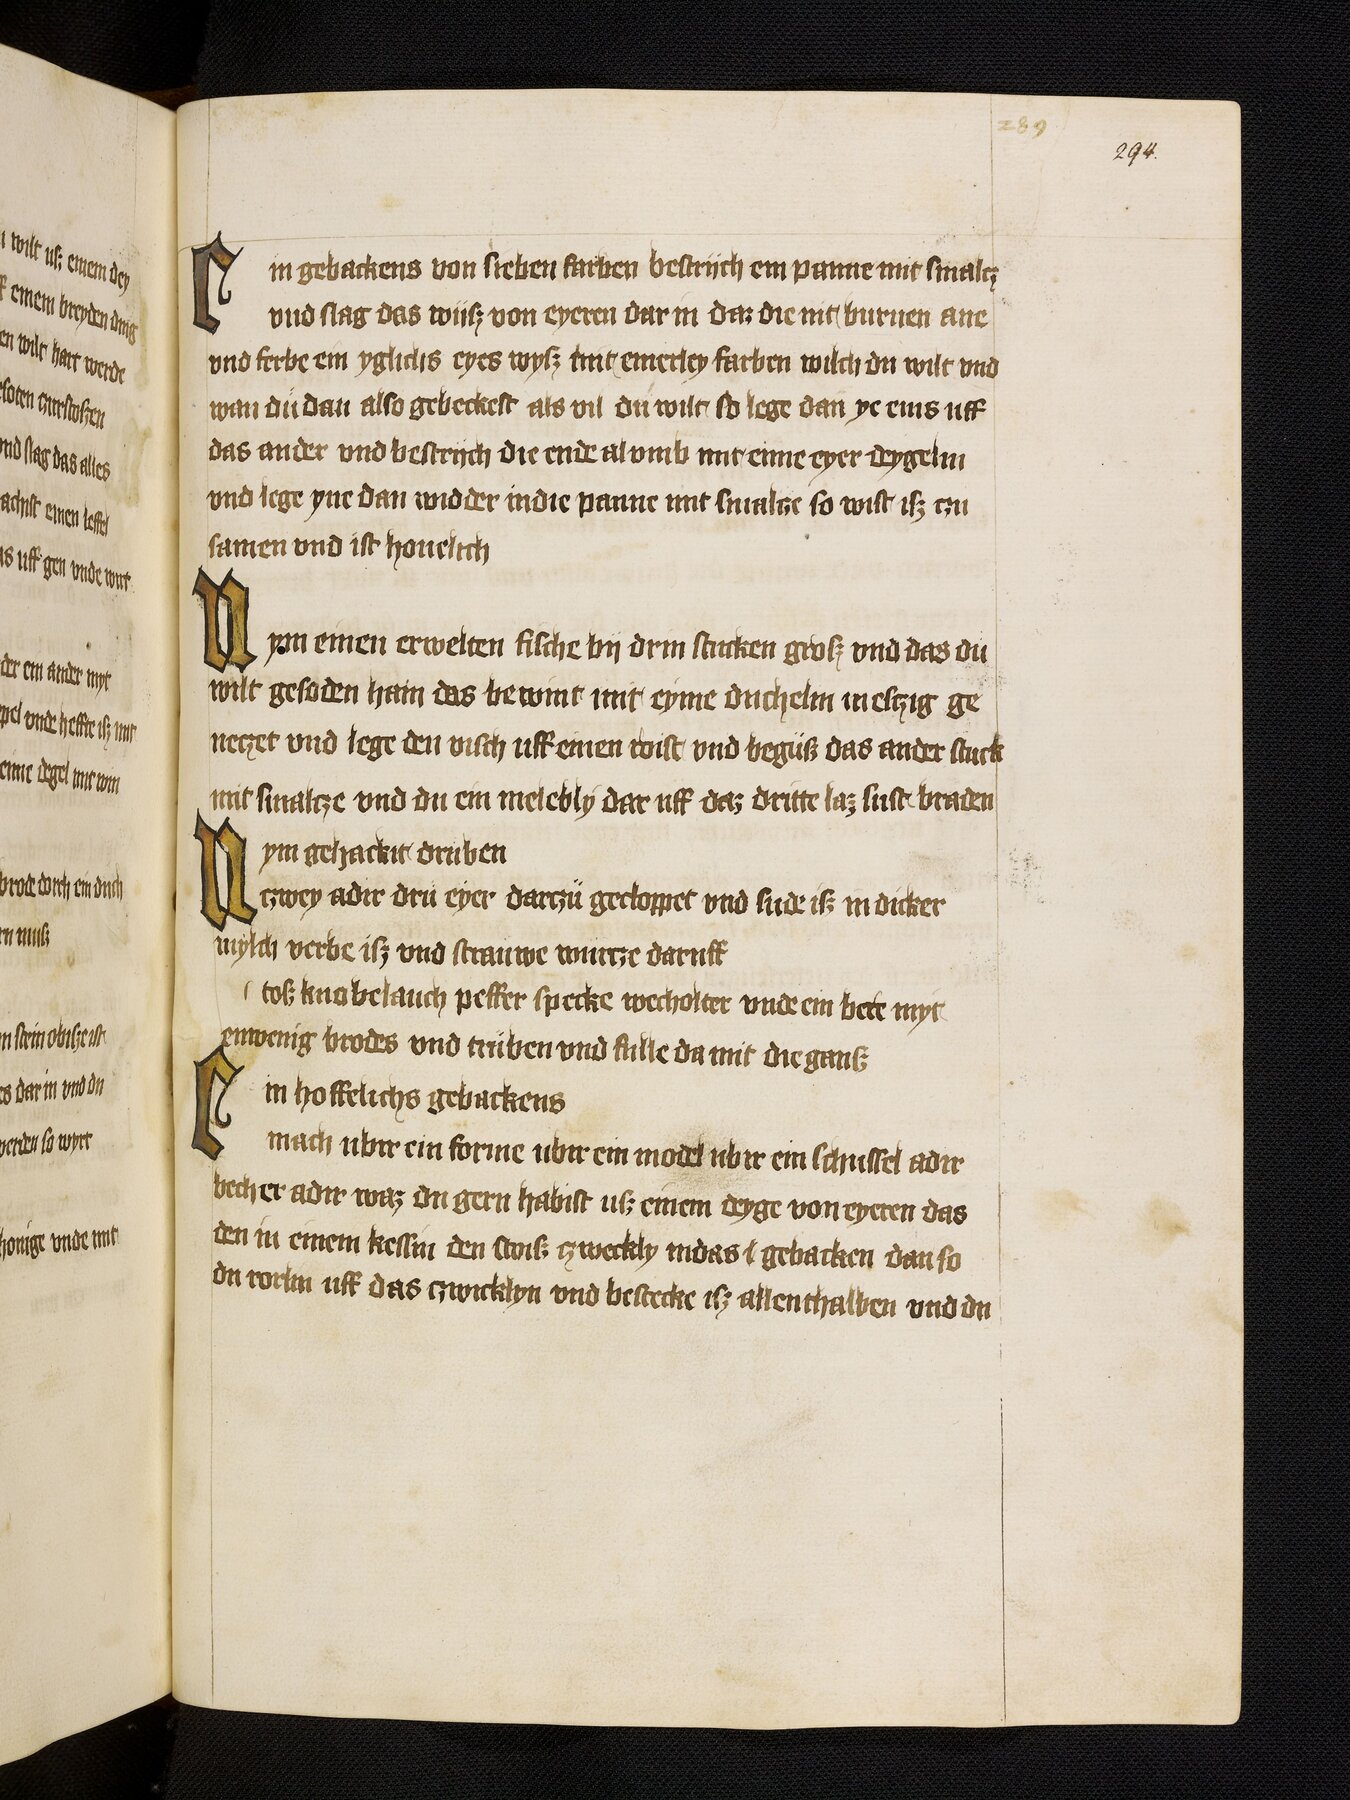 wilt usz einem dey
einem breyden ding
en wilt hart werde
esoten zurstoszen
vnd slag das alles
achist einen leffel
as uff gen vnde wirt
der ein ander myt
ppel vnde heffte isz mit
eime degel mit win
brode dorch ein duch
rn musz
n stein obisze ist
es dar in vnd du
werden so wyrt
honige vnde mit
289
294.
Ein gebackens von sieben farben bestrijch ein panne mit smaltz
vnd slag das wiisz von eyeren dar in daz die nit burnen ane
vnd ferbe ein yglichs eyes wysz mit einerley farben wilch du wilt vnd
wan du dan also gebeckest als vil du wilt so lege dan ye eins uff
das ander vnd bestrijch die ende al vmb mit eime eyer deygelin
vnd lege yne dan widder in die panne mit smaltze so wist isz czu
samen vnd ist houelich
Nym einen erwelten fische vij drin stucken grosz vnd das du
wilt gesoden hain das bewint mit eyme duchelin in eszig ge
neczet vnd lege den visch uff einen roist vnd begüsz das ander stuck
mit smaltze vnd du ein melebly dar uff daz dritte laz sust braden
Nym gehackit druben
czwey adir dru eyer darczü gecloppet vnd sude isz in dicker
mylch verbe isz vnd strauwe wurtze daruff
tosz knobelauch peffer specke wecholter vnde ein bete myt
enwenig brodes vnd trüben vnd fulle da mit die gansz
Ein hoffelichs gebackens
mach ubir ein forme ubir ein model ubir ein schussel adir
becher adir waz du gern habist usz einem deyge von eyeren das
den in einem kessin den stoisz czweckly in das gebacken dan so
du rorlin uff das czwicklyn vnd bestecke isz allenthalben vnd du